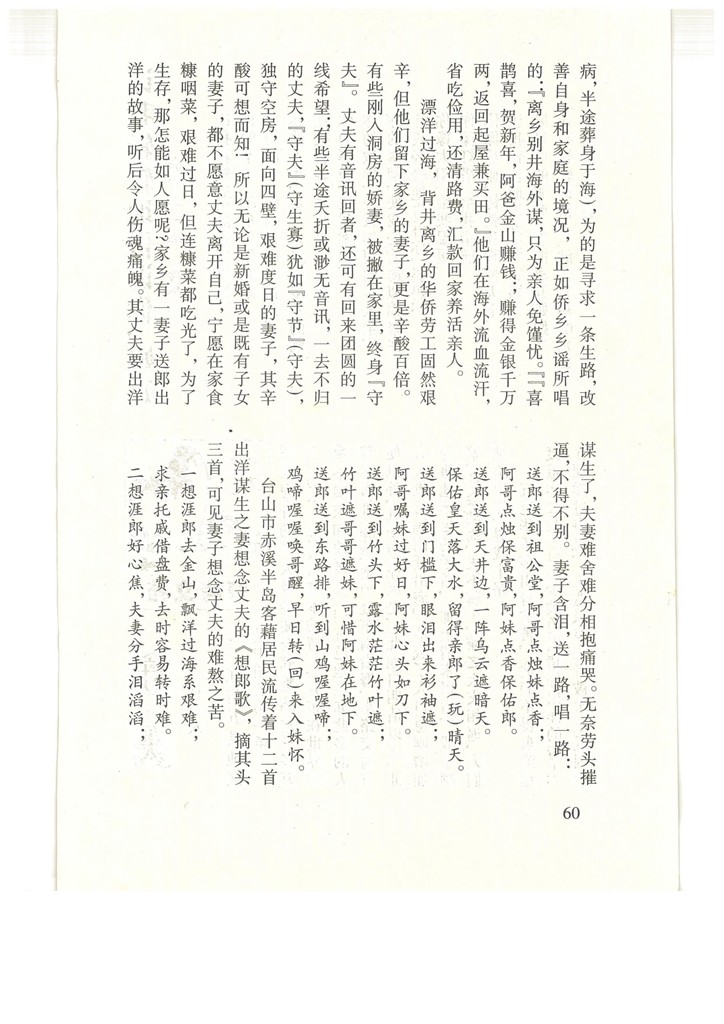 病，半途葬身于海），为的是寻求一条生路，改
善自身和家庭的境况，正如侨乡乡谣所唱
的：『离乡别井海外谋，只为亲人免馑忧。』『喜
鹊喜，贺新年，阿爸金山赚钱；赚得金银千万
两，返回起屋兼买田。』他们在海外流血流汗，
省吃俭用，还清路费，汇款回家养活亲人。
漂洋过海，背井离乡的华侨劳工固然艰
辛，但他们留下家乡的妻子，更是辛酸百倍。
有些刚入洞房的娇妻，被撇在家里，终身『守
夫』。丈夫有音讯回者，还可有回来团圆的一
线希望；有些半途夭折或渺无音讯，一去不归
的丈夫，『守夫』（守生寡）犹如『守节』（守夫），
独守空房，面向四壁，艰难度日的妻子，其辛
酸可想而知！所以无论是新婚或是既有子女
的妻子，都不愿意丈夫离开自己，宁愿在家食
糠咽菜，艰难过日，但连糠菜都吃光了，为了
生存，那怎能如人愿呢？家乡有一妻子送郎出
洋的故事，听后令人伤魂痛魄。其丈夫要出洋
谋生了，夫妻难舍难分相抱痛哭。无奈劳头摧
逼，不得不别。妻子含泪，送一路，唱一路：
送郎送到祖公堂，阿哥点烛妹点香；
阿哥点烛保富贵，阿妹点香保佑郎。
送郎送到天井边，一阵乌云遮暗天。
保佑皇天落大水，留得亲郎了（玩）晴天。
送郎送到门槛下，眼泪出来衫袖遮；
阿哥嘱妹过好日，阿妹心头如刀下。
送郎送到竹头下，露水茫茫竹叶遮；
竹叶遮哥哥遮妹，可惜阿妹在地下。
送郎送到东路排，听到山鸡喔喔啼；
鸡啼喔喔唤哥醒，早日转（回）来入妹怀。
台山市赤溪半岛客藉居民流传着十二首
出洋谋生之妻想念丈夫的《想郎歌》，摘其头
三首，可见妻子想念丈夫的难熬之苦。
一想涯郎去金山，飘洋过海系艰难；
求亲托戚借盘费，去时容易转时难。
二想涯郎好心焦，夫妻分手泪滔滔；
60